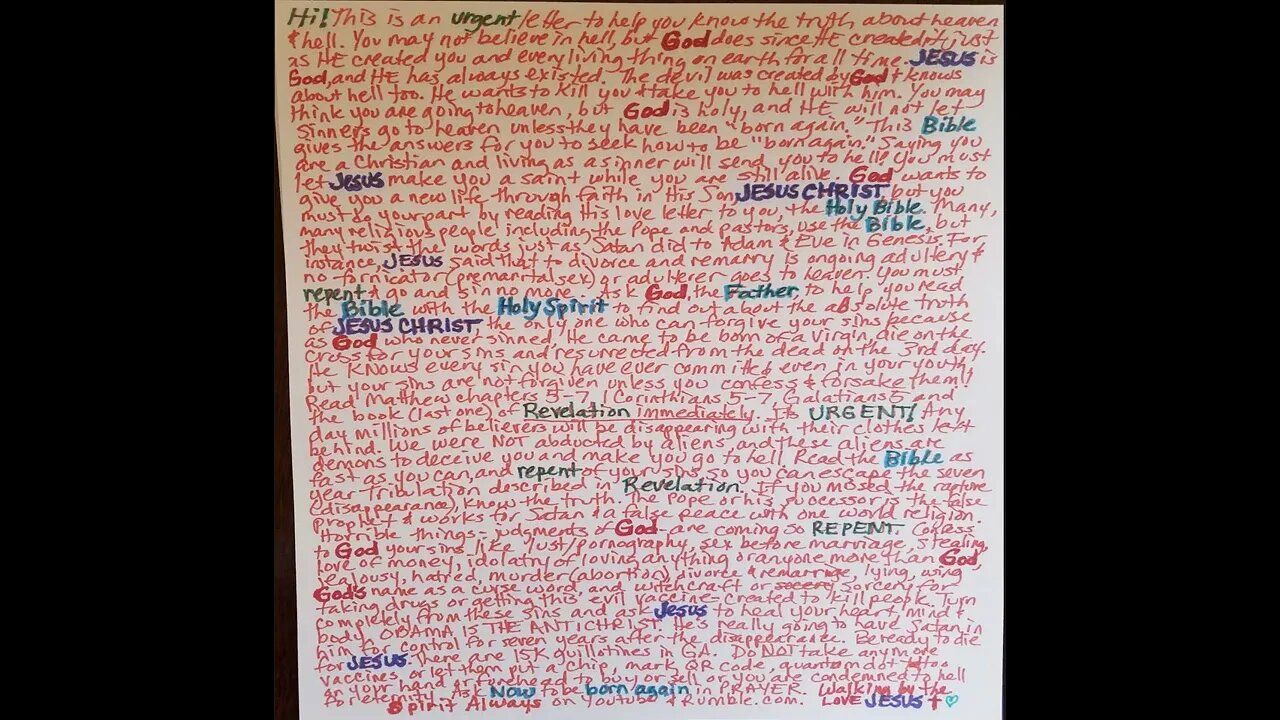 Hi! This is an urgent letter to help you know the truth about heaven
& hell. You may not believe in hell, but God does since HE created it just
as HE created you and every living thing on earth for all time. JESUS is
God, and HE has always existed. The devil was created by God & knows
about hell too. He wants to kill you & take you to hell with him. You may
think you are going to heaven, but God is holy, and HE will not let
sinners go to heaven unless they have been "born again." This Bible
gives the answers for you to seek how to be "born again." Saying you
are a Christian and living as a sinner will send you to hell! You must
let JESUS make you a saint while you are still alive. God wants to
give you a new life through faith in His Son, JESUS CHRIST, but you
must do your part by reading His love letter to you, the Holy Bible. Many,
many religious people including the Pope and pastors, use the Bible, but
they twist the words just as Satan did to Adam & Eve in Genesis. For
instance, JESUS said that to divorce and remarry is ongoing adultery &
no fornicator (premarital sex) or adulterer goes to heaven. You must
repent & go and sin no more. Ask God, the Father, to help you read
the Bible with the Holy Spirit to find out about the absolute truth
of JESUS CHRIST, the only one who can forgive your sins because
as God who never sinned, He came to be born of a virgin, die on the
cross for your sins and resurrected from the dead on the 3rd day.
He KNOWS every sin you have ever committed even in your youth,
but your sins are not forgiven unless you confess & forsake them!
Read Matthew chapters 5-7, 1 Corinthians 5-7, Galatians 5 and
the book (last one) of Revelation immediately. It's URGENT! Any
day millions of believers will be disappearing with their clothes left
behind. We were NOT abducted by aliens, and these aliens are
demons to deceive you and make you go to hell. Read the Bible as
fast as you can, and repent of your sins so you can escape the seven
year Tribulation described in Revelation. If you missed the rapture
(disappearance), know the truth. The Pope or his successor is the false
prophet & works for Satan & a false peace with one world religion.
Horrible things - judgments of God - are coming so REPENT. Confess
to God your sins like lust/pornography, sex before marriage, stealing,
love of money, idolatry of loving anything or anyone more than God,
jealousy, hatred, murder (abortion), divorce & remarriage, lying, using
God's name as a curse word, and witchcraft or sorcery for
taking drugs or getting this evil vaccine - created to kill people. Turn
completely from these sins and ask Jesus to heal your heart, mind &
body. OBAMA IS THE ANTICHRIST. He's really going to have Satan in
him for control for seven years after the disappearance. Be ready to die
for JESUS. There are 15K guillotines in GA. Do NOT take any more
vaccines, or let them put a chip, mark, QR code, quantom dot tattoo
or your hand or forehead to buy or sell or you are condemned to hell
for eternity. Ask NOW to be born again in PRAYER. Walking by the
Spirit Always on Youtube & Rumble.com. LOVE JESUS